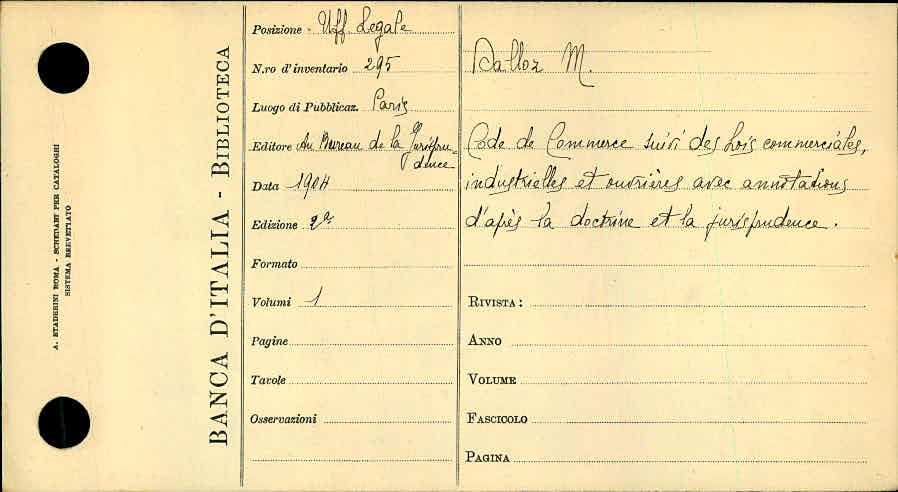 A. STADERINI ROMA - SCHEDARI PER CATALOGHI
SISTEMA BREVETTATO
BANCA D'ITALIA - BIBLIOTECA
Posizione - Uff. Legale
N.ro d'inventario 295
Luogo di Pubblicaz. Paris
Editore Au Bureau de la Jurispru-
dence
Data 1904
Edizione 9ª
Formato
Volumi 1
Pagine
Tavole
Osservazioni
Dalloz M.
Code de Commerce suivi des Lois commerciales,
industrielles et ouvrières avec annotations
d'après la doctrine et la jurisprudence.
RIVISTA:
ANNO
VOLUME
FASCICOLO
PAGINA